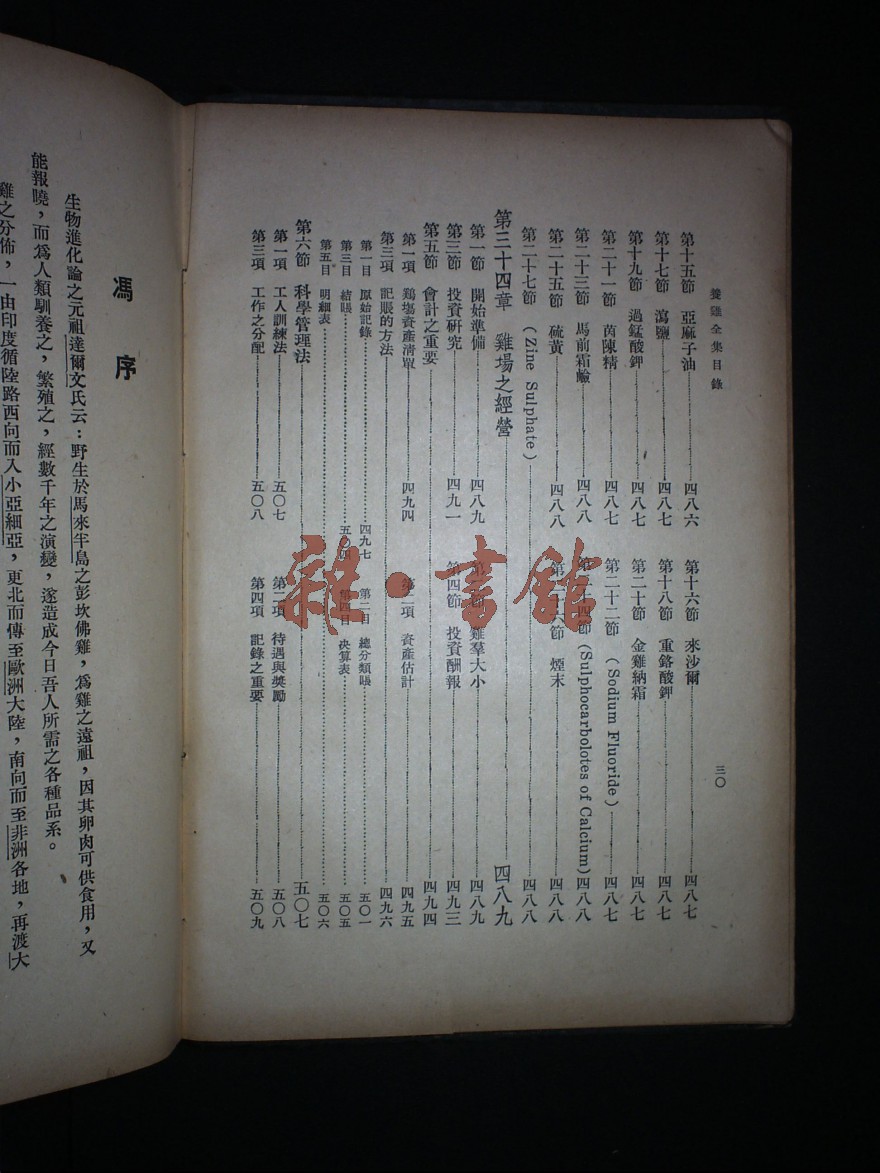 養雞全集目錄
三〇
第十五節 亞麻子油 四八六 第十六節 來沙爾 四八七
第十七節 瀉鹽 四八七 第十八節 重鉻酸鉀 四八七
第十九節 過錳酸鉀 四八七 第二十節 金雞納霜 四八七
第二十一節 茵陳精 四八七 第二十二節 (Sodium Fluoride) 四八七
第二十三節 馬前霜鹼 四八八 第二十四節 (Sulphocarbolotes of Calcium) 四八八
第二十五節 硫黃 四八八 第二十六節 煙末 四八八
第二十七節 (Zine Sulphate) 四八八
第三十四章 雞場之經營 四八九
第一節 開始準備 四八九 第二節 雞羣大小 四八九
第三節 投資研究 四九一 第四節 投資酬報 四九三
第五節 會計之重要 四九四
第一項 鷄場資產清單 四九四 第二項 資產估計 四九五
第三項 記賬的方法 四九六
第一目 原始記錄 四九七 第二目 總分類賬 五〇一
第三目 結賬 五〇四 第四目 決算表 五〇五
第五目 明細表 五〇六
第六節 科學管理法 五〇七
第一項 工人訓練法 五〇七 第二項 待遇與獎勵 五〇八
第三項 工作之分配 五〇八 第四項 記錄之重要 五〇九
雜·書館
馮序
生物進化論之元祖達爾文氏云：野生於馬來半島之彭坎佛雞，爲雞之遠祖，因其卵肉可供食用，又
能報曉，而爲人類馴養之，繁殖之，經數千年之演變，遂造成今日吾人所需之各種品系。
雞之分佈，一由印度循陸路西向而入小亞細亞，更北而傳至歐洲大陸，南向而至非洲各地，再渡大